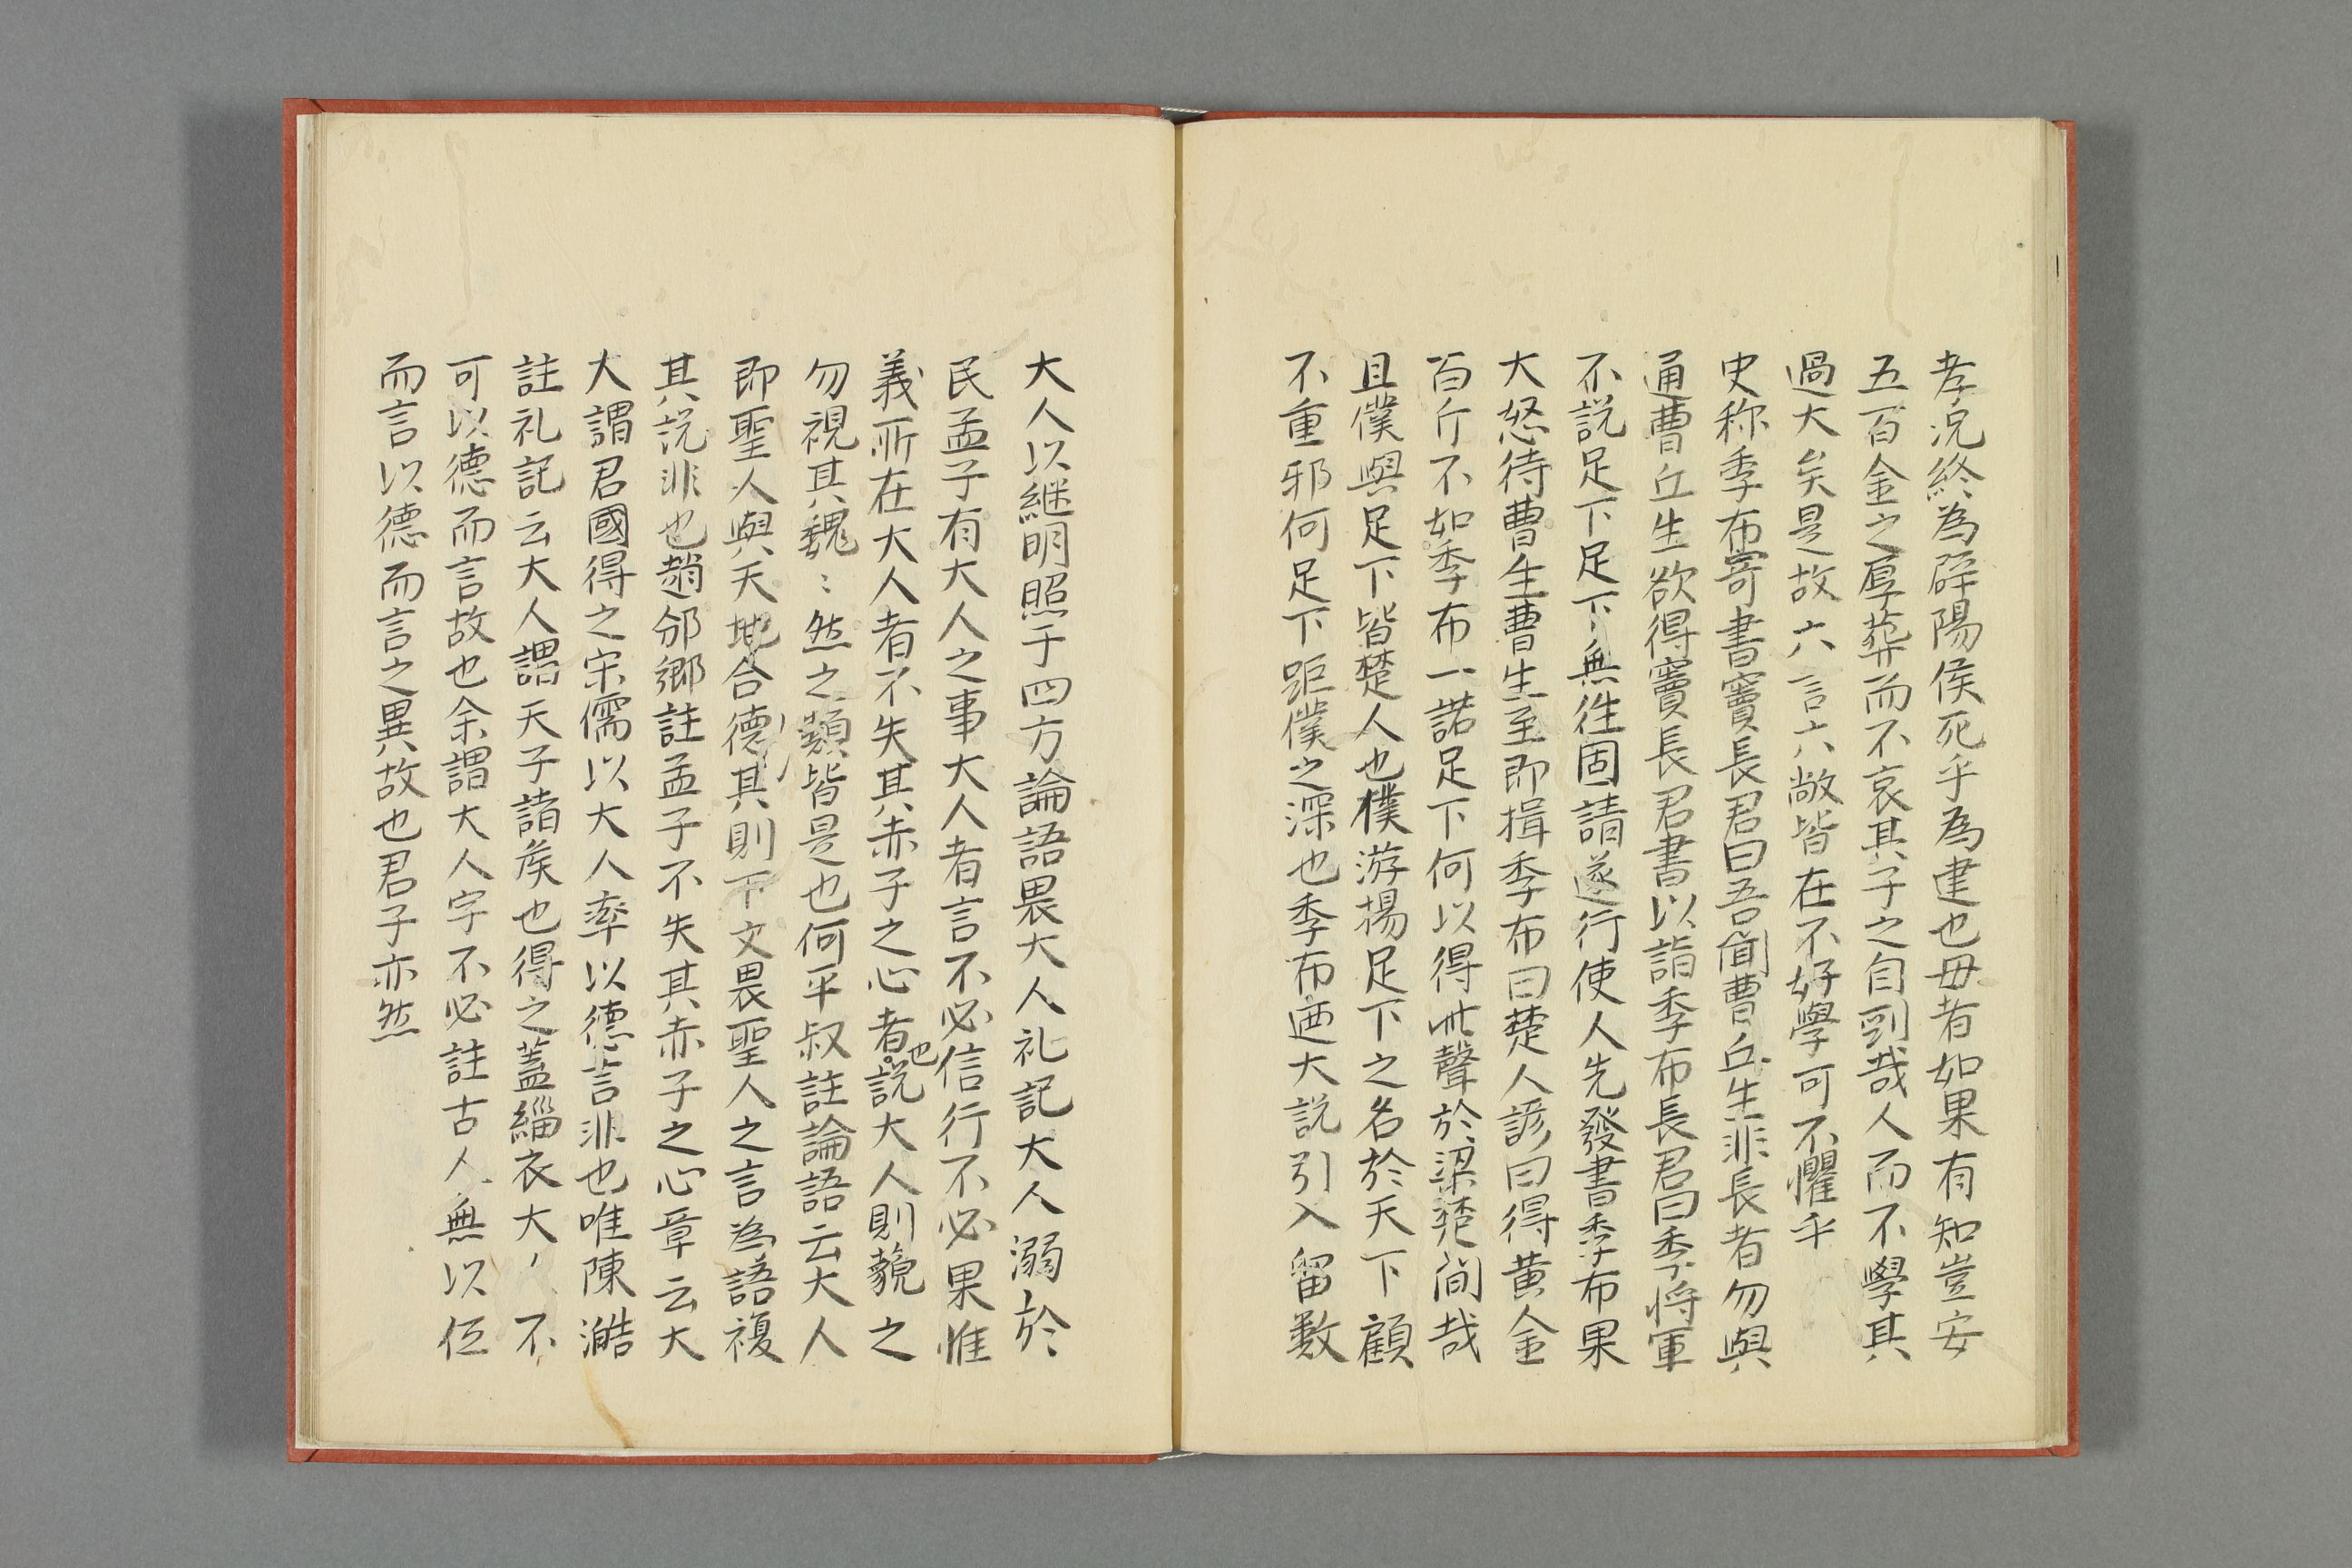 孝況終為辟陽侯死乎為建也毋者如果有知豈安
五百金之厚葬而不哀其子之自剄哉人而不學其
過大矣是故六言六敝皆在不好學可不懼乎
史称季布寄書竇長君曰吾聞曹丘生非長者勿與
通曹丘生欲得竇長君書以詣季布長君曰季将軍
不説足下足下無徃固請遂行使人先發書季布果
大怒待曹生曹生至即揖季布曰楚人諺曰得黄金
百斤不如季布一諾足下何以得此聲於梁楚間哉
且僕與足下皆楚人也僕游揚足下之名於天下顧
不重邪何足下距僕之深也季布廼大説引入留数
大人以継明照于四方論語畏大人礼記大人溺於
民孟子有大人之事大人者言不必信行不必果惟
義所在大人者不失其赤子之心者也説大人則藐之
勿視其巍〻然之類皆是也何平叔註論語云大人
即聖人與天地合德其則下文畏聖人之言為語複
其説非也趙邠卿註孟子不失其赤子之心章云大
大謂君國得之宋儒以大人率以德言非也唯陳澔
註礼記云大人謂天子諸矦也得之蓋緇衣大人不
可以德而言故也余謂大人字不必註古人無以位
而言以德而言之異故也君子亦然